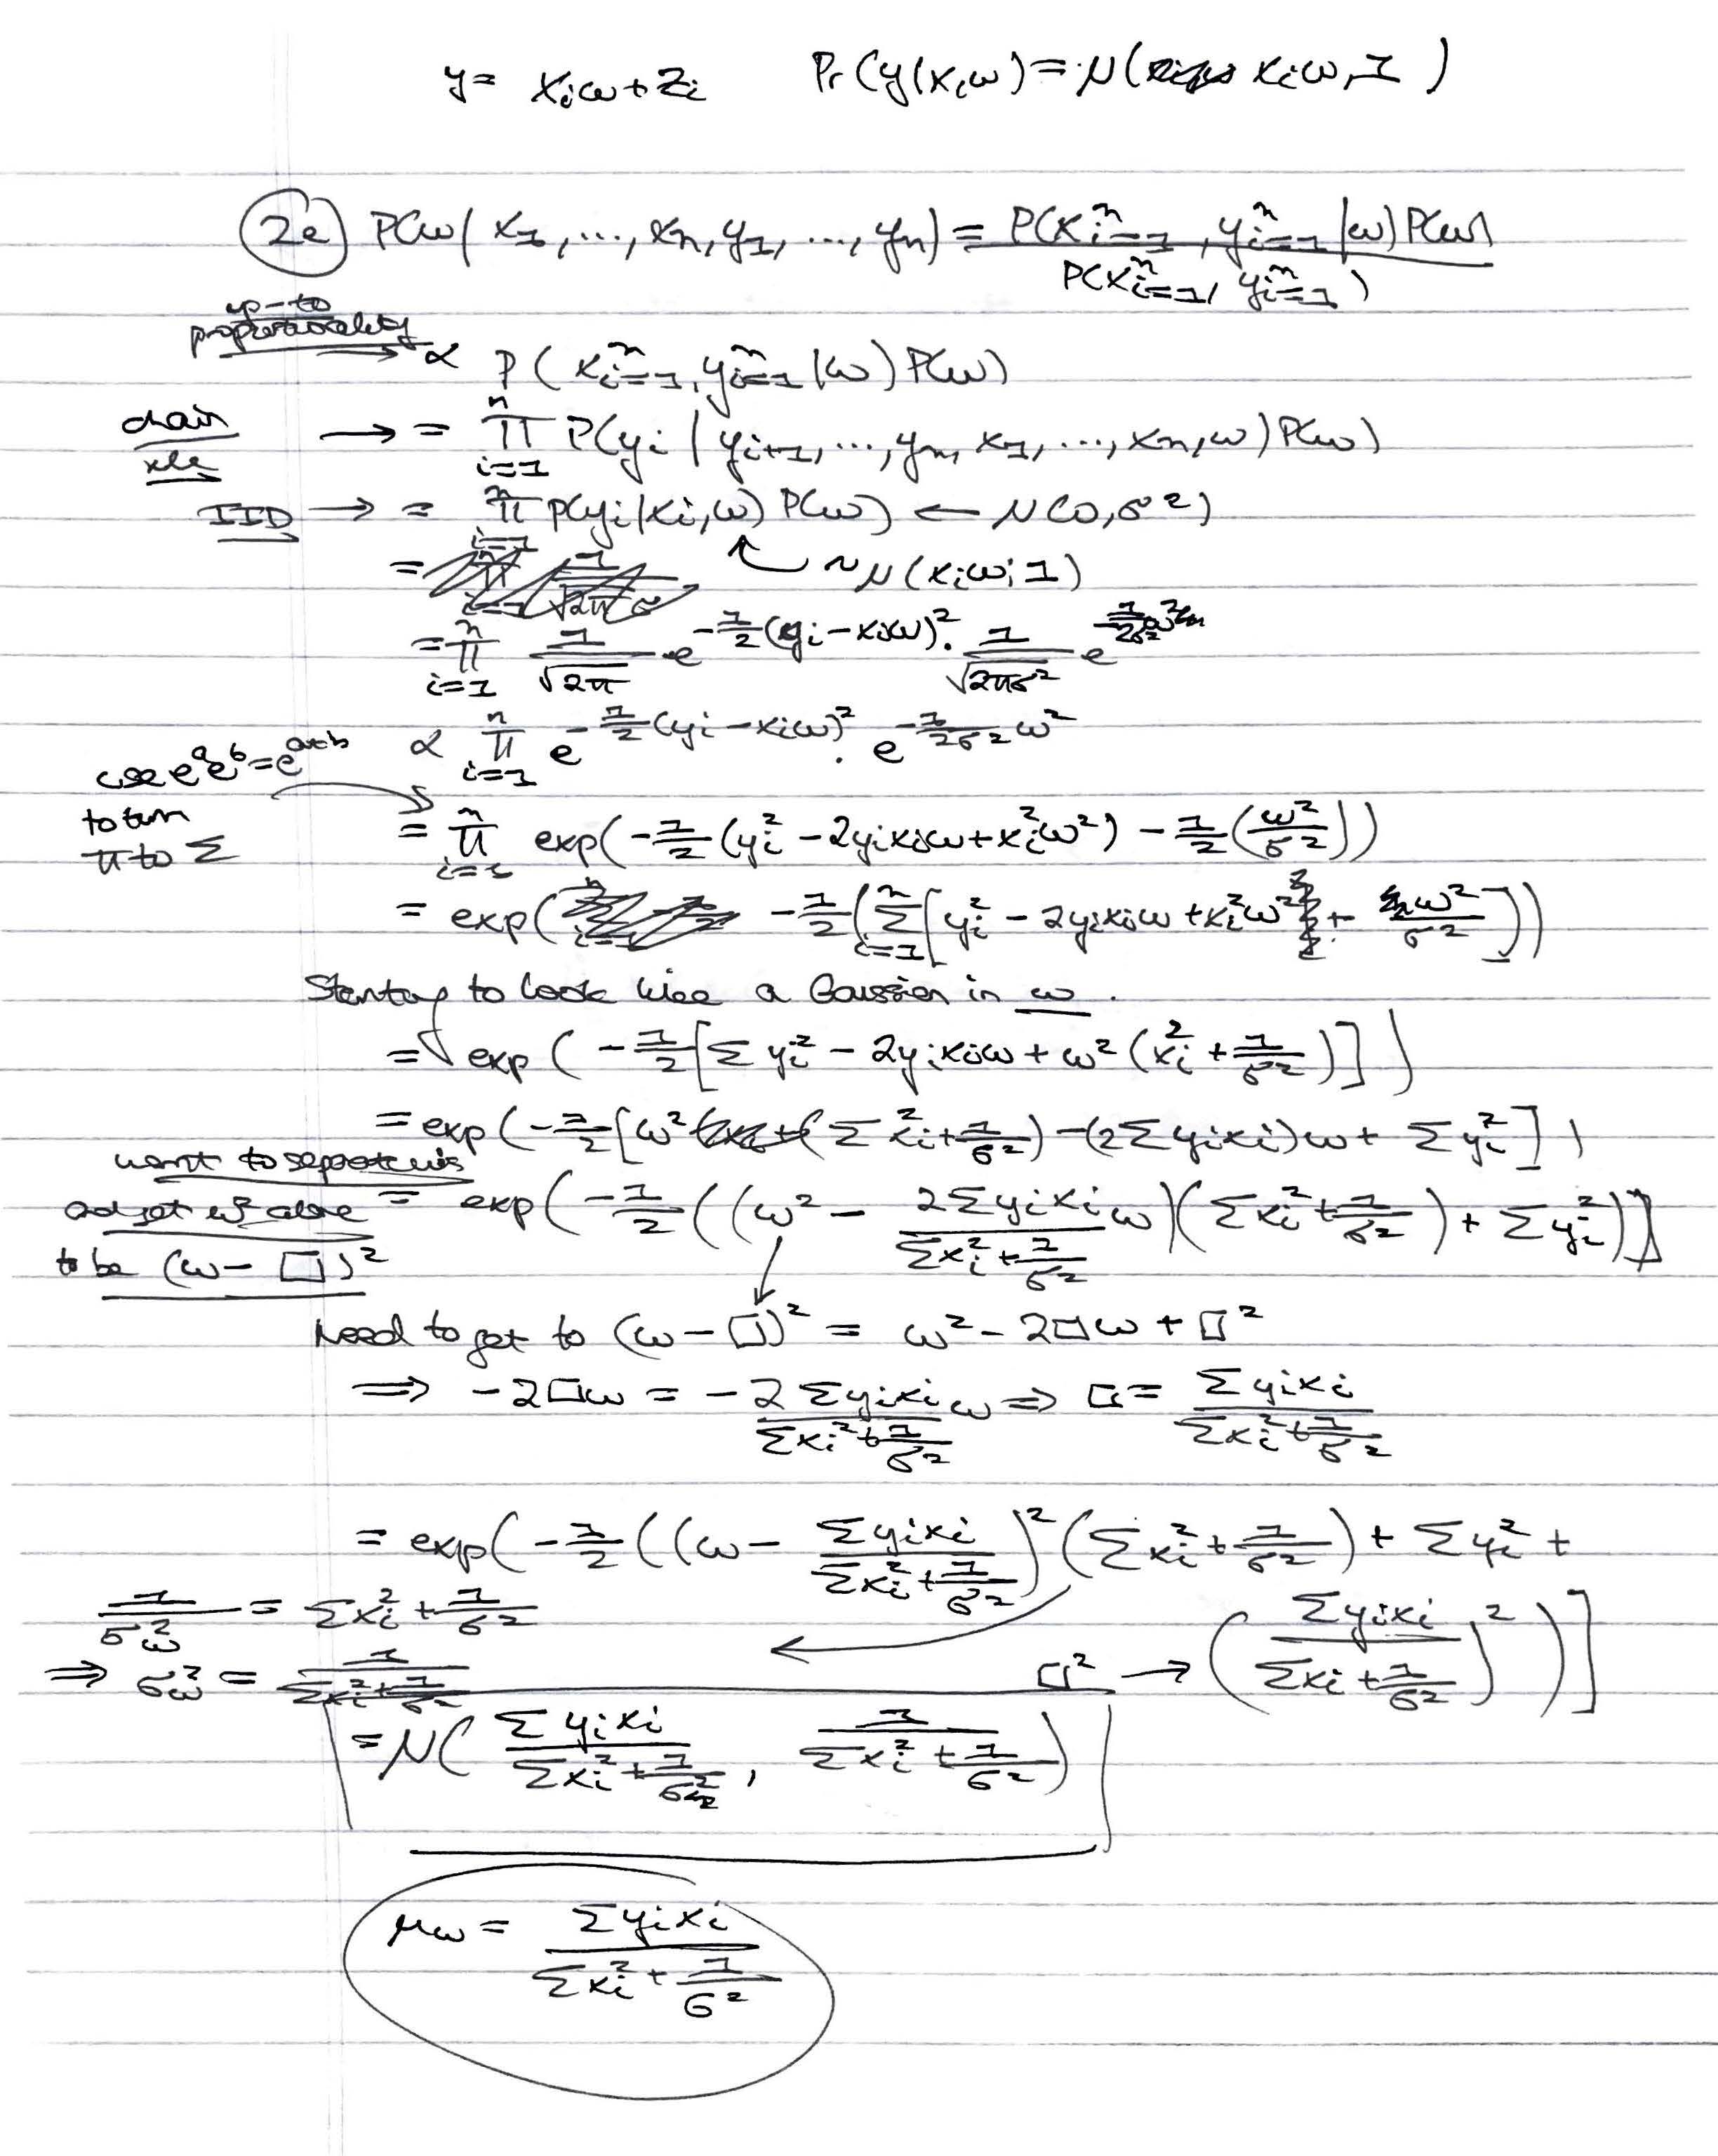 y = xᵢω + zᵢ Pr(y|xᵢω) = N(xᵢω, 1)
2e) P(ω | x₁, ..., xₙ, y₁, ..., yₙ) = P(xᵢⁿ₌₁, yᵢⁿ₌₁ | ω) P(ω) / P(xᵢⁿ₌₁, yᵢⁿ₌₁)
up-to proportionality → ∝ P(xᵢⁿ₌₁, yᵢⁿ₌₁ | ω) P(ω)
chain rule → = Π_{i=1}^{n} P(yᵢ | yᵢ₊₁, ..., yₙ, x₁, ..., xₙ, ω) P(ω)
IID → = Π_{i=1}^{n} P(yᵢ | xᵢ, ω) P(ω) ← N(0, σ²)
= ~ N(xᵢω; 1)
= Π_{i=1}^{n} 1/√(2π) · e^{-1/2 (yᵢ - xᵢω)²} · 1/√(2πσ²) e^{-1/(2σ²) ω²}
∝ Π_{i=1}^{n} e^{-1/2 (yᵢ - xᵢω)²} · e^{-1/(2σ²) ω²}
use eᵃeᵇ = eᵃ⁺ᵇ
to turn
π to Σ
= Π_{i=1}^{n} exp(-1/2 (yᵢ² - 2yᵢxᵢω + xᵢ²ω²) - 1/2 (ω²/σ²))
= exp(-1/2 (Σ_{i=1}^{n} [yᵢ² - 2yᵢxᵢω + xᵢ²ω² + ω²/σ²]))
Starting to look like a Gaussian in ω.
= exp(-1/2 [Σ yᵢ² - 2yᵢxᵢω + ω² (xᵢ² + 1/σ²)])
= exp(-1/2 [ω² (Σ xᵢ² + 1/σ²) - (2Σ yᵢxᵢ)ω + Σ yᵢ²])
want to separate this
and get ω² alone
to be (ω - □)²
= exp(-1/2 ((ω² - 2Σyᵢxᵢ/(Σxᵢ² + 1/σ²) ω)(Σxᵢ² + 1/σ²) + Σyᵢ²)]
Need to get to (ω - □)² = ω² - 2□ω + □²
⇒ -2□ω = -2 Σyᵢxᵢ/(Σxᵢ² + 1/σ²) ω ⇒ □ = Σyᵢxᵢ/(Σxᵢ² + 1/σ²)
= exp(-1/2 ((ω - Σyᵢxᵢ/(Σxᵢ² + 1/σ²))² (Σxᵢ² + 1/σ²) + Σyᵢ² +
□² → (Σyᵢxᵢ/(Σxᵢ + 1/σ²))²)]
1/σ_ω² = Σxᵢ² + 1/σ²
⇒ σ_ω² = 1/(Σxᵢ² + 1/σ²)
= N(Σyᵢxᵢ/(Σxᵢ² + 1/σ²), 1/(Σxᵢ² + 1/σ²))
μ_ω = Σyᵢxᵢ/(Σxᵢ² + 1/σ²)